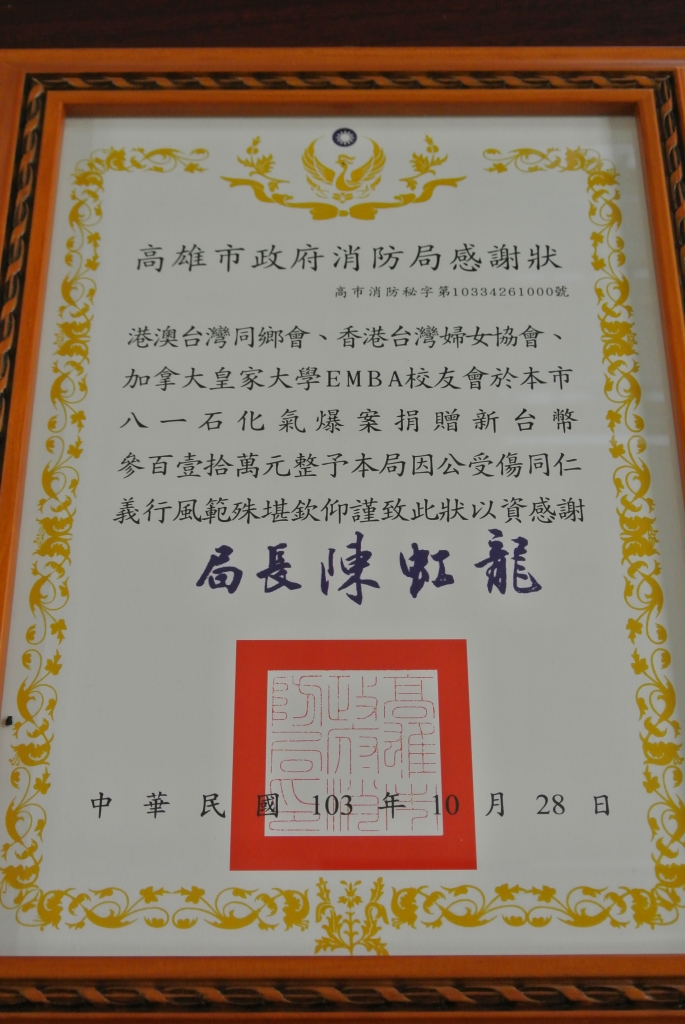 高雄市政府消防局感謝狀
高市消防秘字第10334261000號
港澳台灣同鄉會、香港台灣婦女協會、
加拿大皇家大學EMBA校友會於本市
八一石化氣爆案捐贈新台幣
參百壹拾萬元整予本局因公受傷同仁
義行風範殊堪欽仰謹致此狀以資感謝
局長陳虹龍
高雄市政府消防局印
中華民國103年10月28日